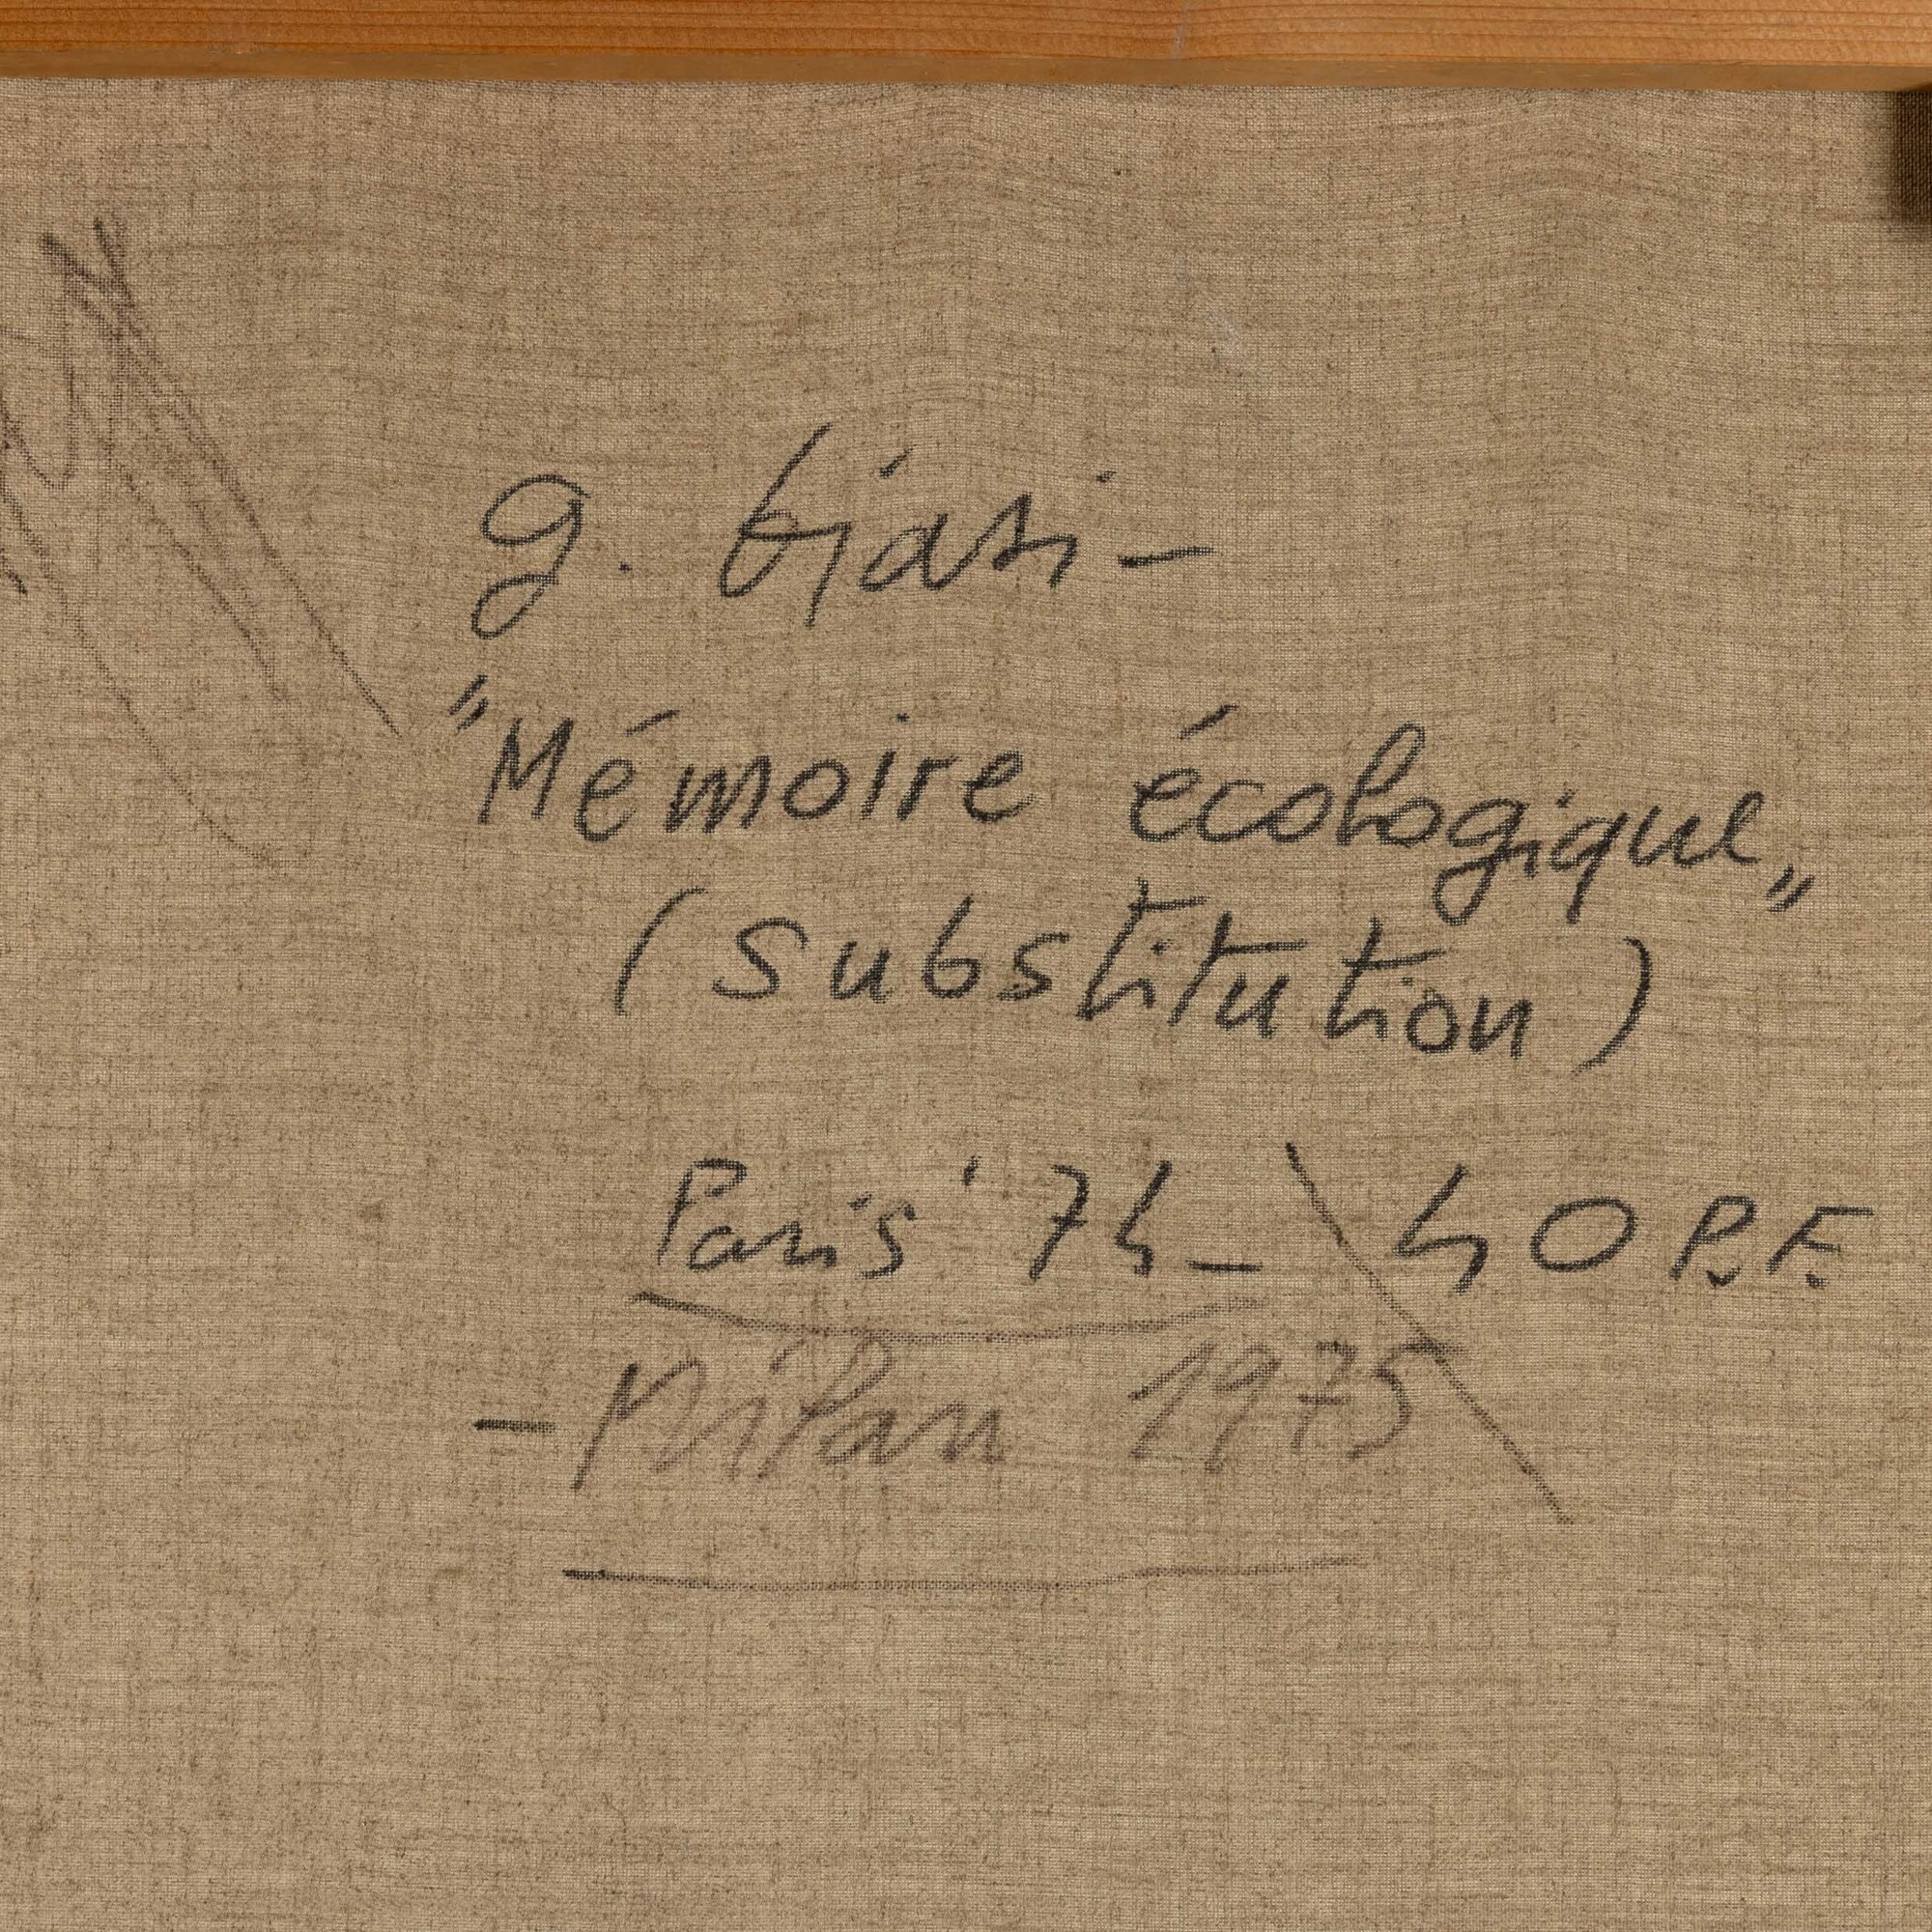 g. Biasi –
"Mémoire écologique„
(substitution)
Paris '74_ 40 P.F.
– Milan 1975